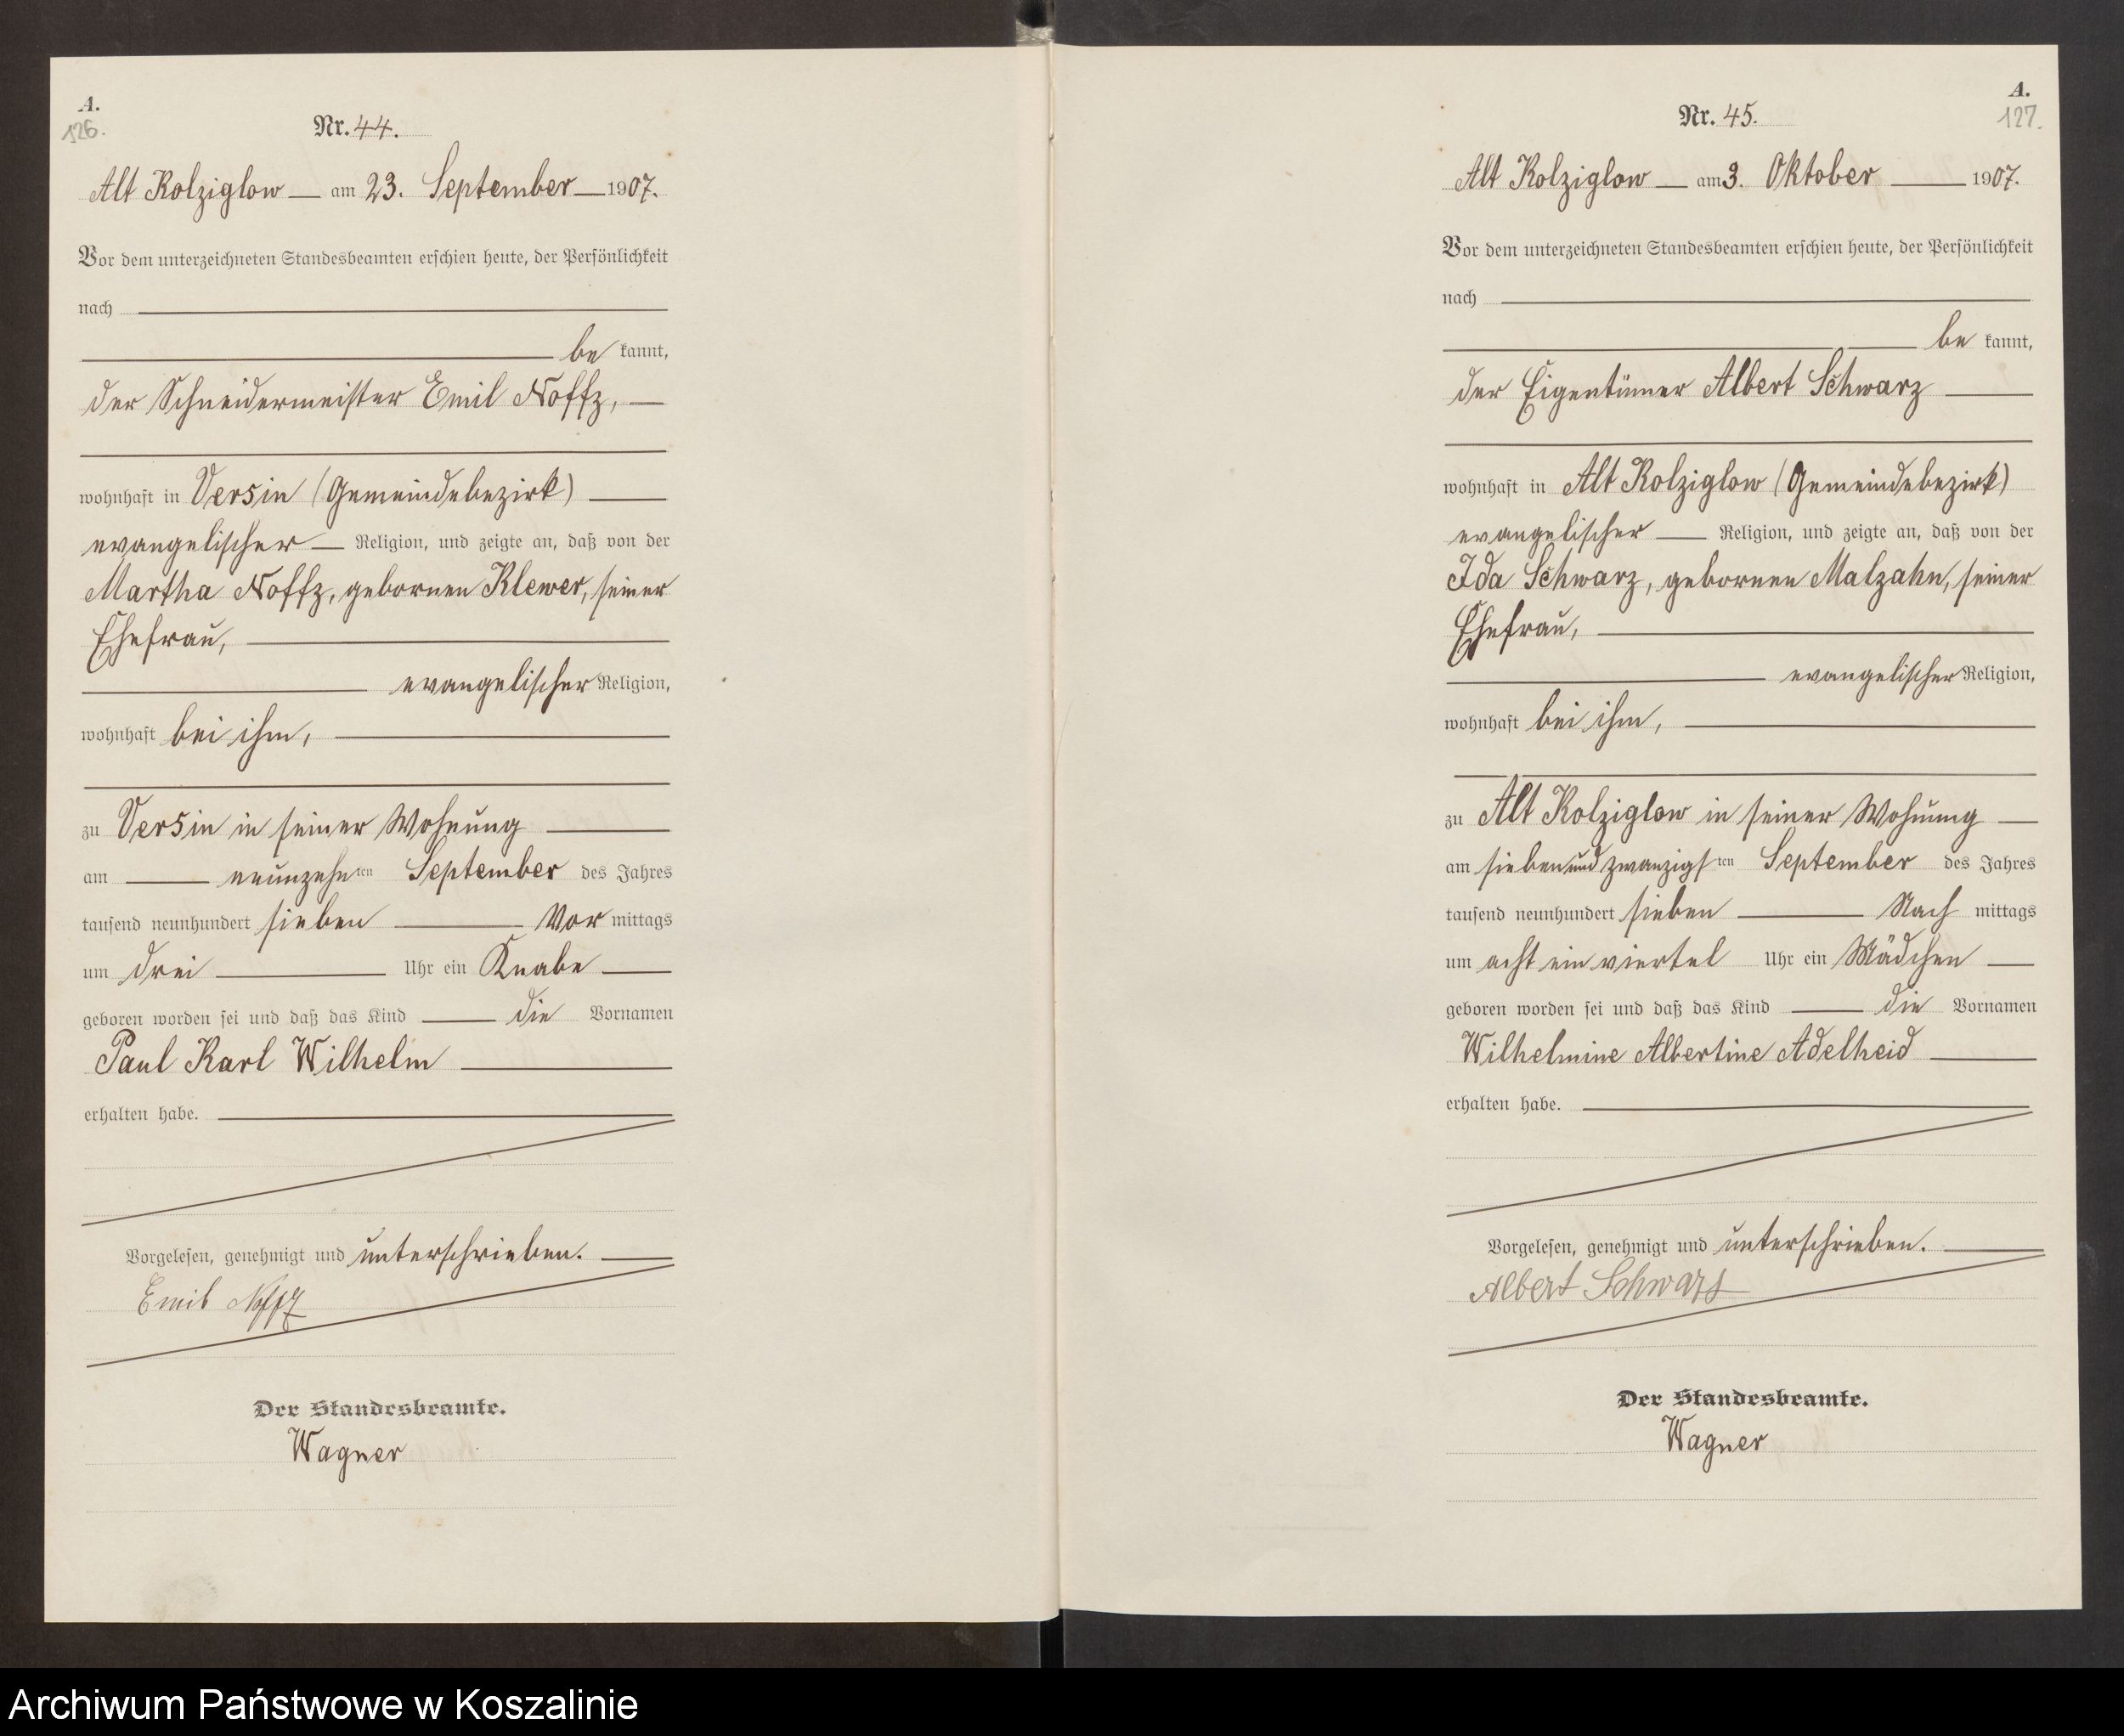 A.
126.
Nr. 44.
Alt Kolziglow — am 23. September — 1907.
Vor dem unterzeichneten Standesbeamten erschien heute, der Persönlichkeit
nach
be kannt,
der Schneidermeister Emil Noffz, —
wohnhaft in Versin (Gemeindebezirk) —
evangelischer — Religion, und zeigte an, daß von der
Martha Noffz, gebornen Klewer, seiner
Ehefrau, —
evangelischer Religion,
wohnhaft bei ihm, —
zu Versin in seiner Wohnung —
am — neunzehnten September des Jahres
tausend neunhundert sieben — Vor mittags
um drei — Uhr ein Knabe —
geboren worden sei und daß das Kind — die Vornamen
Paul Karl Wilhelm —
erhalten habe. —
Vorgelesen, genehmigt und unterschrieben. —
Emil Noffz
Der Standesbeamte.
Wagner
A.
127.
Nr. 45.
Alt Kolziglow — am 3. Oktober — 1907.
Vor dem unterzeichneten Standesbeamten erschien heute, der Persönlichkeit
nach
be kannt,
der Eigentümer Albert Schwarz —
wohnhaft in Alt Kolziglow (Gemeindebezirk)
evangelischer — Religion, und zeigte an, daß von der
Ida Schwarz, gebornen Malzahn, seiner
Ehefrau, —
evangelischer Religion,
wohnhaft bei ihm, —
zu Alt Kolziglow in seiner Wohnung —
am siebenundzwanzigsten September des Jahres
tausend neunhundert sieben — Nach mittags
um acht ein viertel Uhr ein Mädchen —
geboren worden sei und daß das Kind — die Vornamen
Wilhelmine Albertine Adelheid —
erhalten habe. —
Vorgelesen, genehmigt und unterschrieben. —
Albert Schwarz
Der Standesbeamte.
Wagner
Archiwum Państwowe w Koszalinie